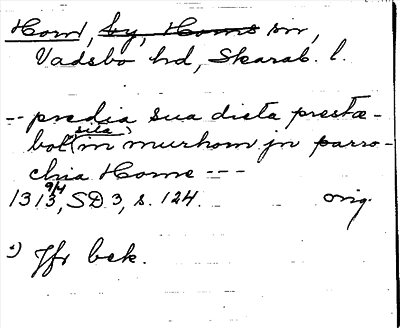 Horn, by, Horns sn,
Vadsbo hd, Skarab. l.
-- predia sua dicta prestæ-
bol (sita 1) in murhom jn parro-
chia Horne ---
1313 9/4, SD 3, s. 124. orig.
1) Jfr bek.